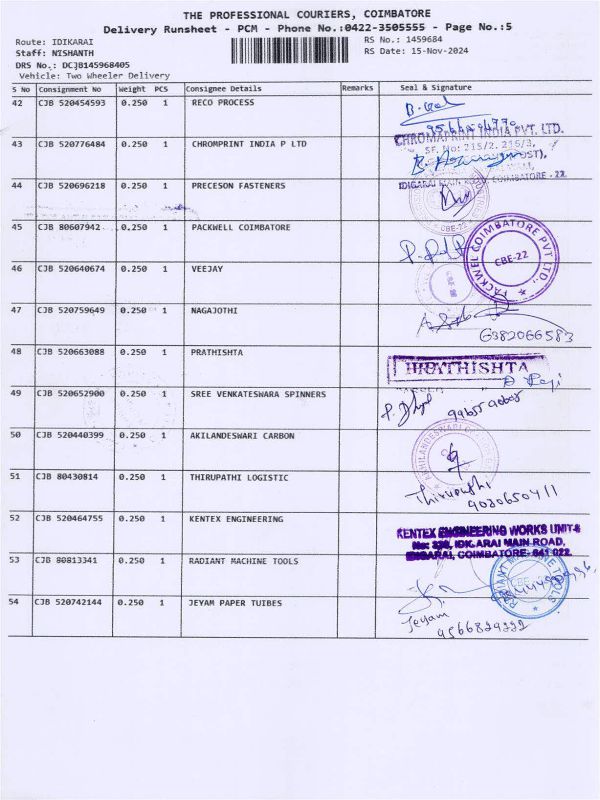 THE PROFESSIONAL COURIERS, COIMBATORE
Delivery Runsheet - PCM - Phone No.:0422-3505555 - Page No.:5
Route: IDIKARAI
RS No.: 1459684
Staff: NISHANTH
RS Date: 15-Nov-2024
DRS No.: DCJB145968405
Vehicle: Two Wheeler Delivery
S No Consignment No Weight PCS Consignee Details Remarks Seal & Signature
42 CJB 520454593 0.250 1 RECO PROCESS
43 CJB 520776484 0.250 1 CHROMPRINT INDIA P LTD
CHROMAPRINT INDIA PVT. LTD.
SF. No: 215/2, 215/3,
IDIGARAI MAIN COIMBATORE - 22.
44 CJB 520696218 0.250 1 PRECESON FASTENERS
CBE-22
45 CJB 80607942 0.250 1 PACKWELL COIMBATORE
PACKWEL COIMBATORE PVT LTD.,
CBE-22
46 CJB 520640674 0.250 1 VEEJAY
47 CJB 520759649 0.250 1 NAGAJOTHI
6382066583
48 CJB 520663088 0.250 1 PRATHISHTA
PRATHISHTA
49 CJB 520652900 0.250 1 SREE VENKATESWARA SPINNERS
50 CJB 520440399 0.250 1 AKILANDESWARI CARBON
51 CJB 80430814 0.250 1 THIRUPATHI LOGISTIC
Thirupathi
9020650411
52 CJB 520464755 0.250 1 KENTEX ENGINEERING
KENTEX ENGINEERING WORKS UNIT-II
No: 330, IDIGARAI MAIN ROAD,
IDIGARAI, COIMBATORE- 641 022.
53 CJB 80813341 0.250 1 RADIANT MACHINE TOOLS
RADIANT MACHINE TOOLS
CBE
54 CJB 520742144 0.250 1 JEYAM PAPER TUIBES
Jeyam
9566829222